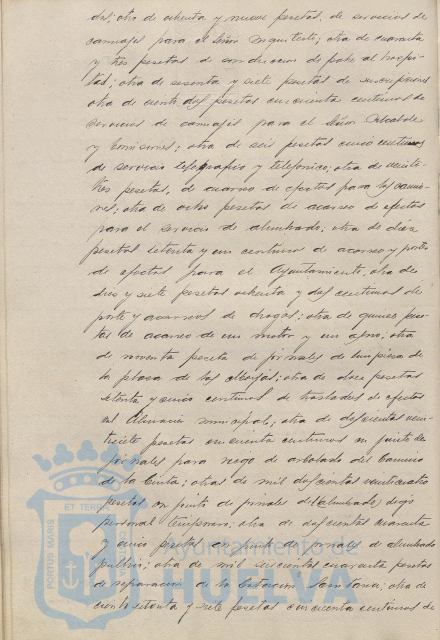 das; otra de ochenta y nueve pesetas, de servicios de
carruajes para el Señor Arquitecto; otra de cuarenta
y tres pesetas de conduccion de pobres al hospi-
tal; otra de sesenta y siete pesetas de suscripciones
otra de ciento dos pesetas cincuenta centimos de
servicios de carruajes para el Señor Alcalde
y Comisiones; otra de seis pesetas cinco centimos
de servicio telegrafico y telefonico; otra de veinte
tres pesetas, de acarreo de efectos para los
otra de ocho pesetas de acarreo de efectos
para el servicio de alumbrado; otra de diez
pesetas setenta y un centimos de acarreo y portes
de efectos para el Ayuntamiento, otra de
diez y siete pesetas ochenta y dos centimos de
porte y acarreos de drogas; otra de quince pese-
tas de acarreo de un motor y un
de noventa peseta de jornales de limpieza de
la plaza de las otra de doce pesetas
setenta y cinco centimos de traslados de efectos
al Almacen municipal; otra de doscientas vein-
tisiete pesetas cincuenta centimos en junto de
jornales para riego de arbolado del Camino
de la Cinta; otras de mil doscientas veinticuatro
pesetas en junto de jornales del alumbrado,
personal temporero; otra de doscientas cuarenta
y cinco pesetas en junto de jornales de alumbrado
publico; otra de mil seiscientas cuarenta pesetas
de reparacion de la Estacion Sanitaria; otra de
ciento setenta y siete pesetas cincuenta centimos de
ET TERRA
PORTUS MARIS
CUSTODIA
Ayuntamiento de
HUELVA